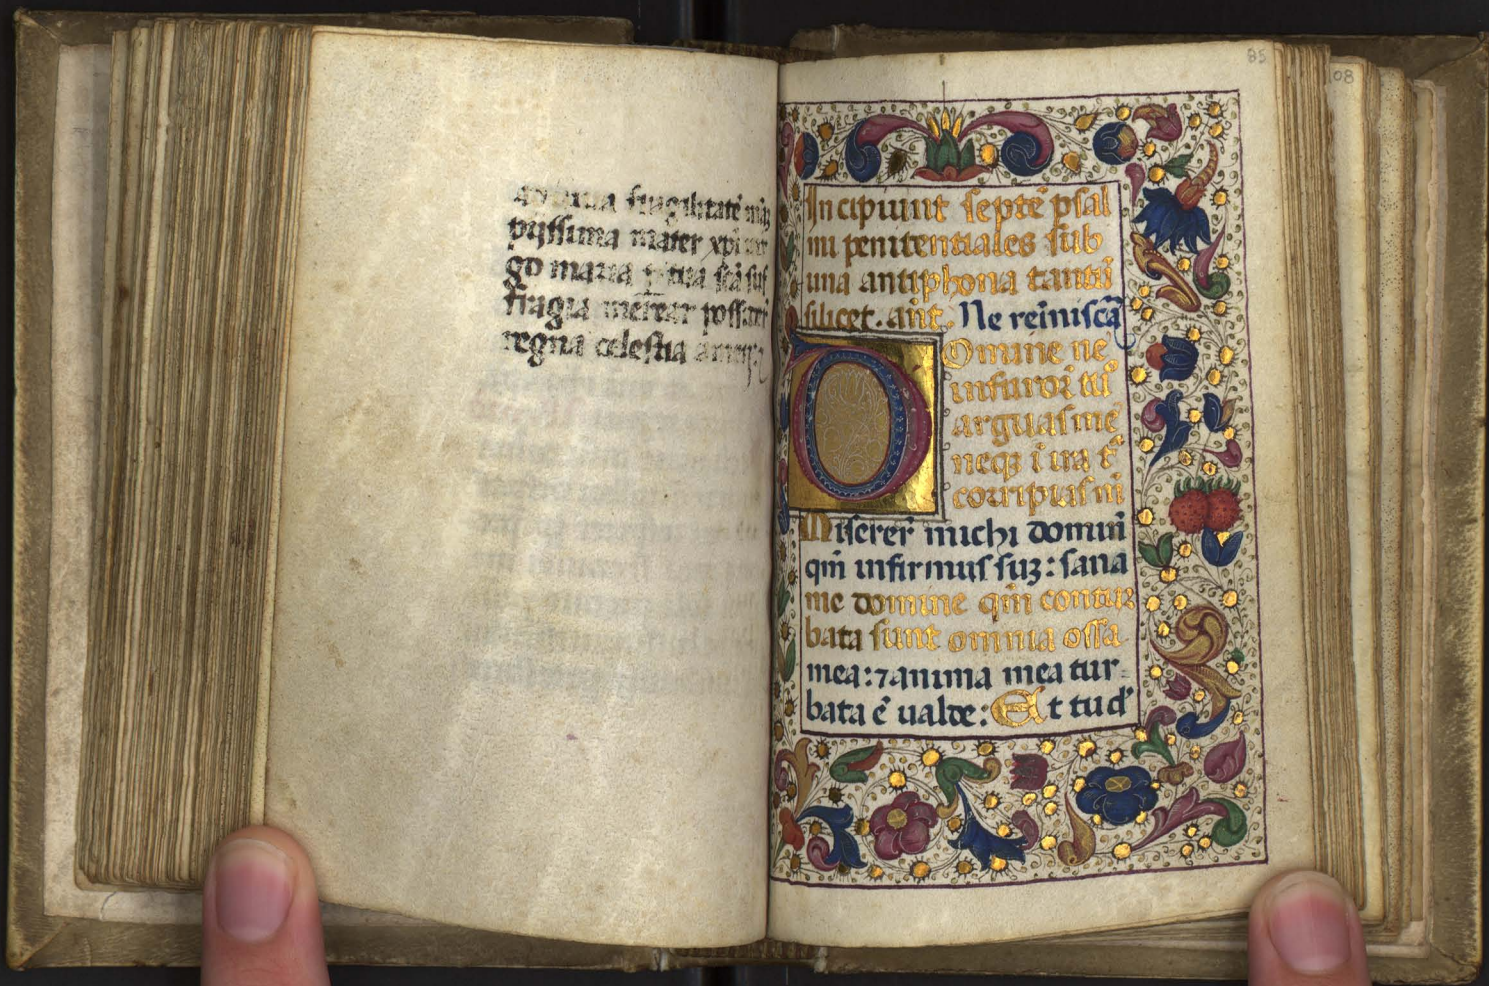 fragilitatē
pijssima mater xp̄i
go maria ⁊ tua sc̄a suf
fragia merear
regna celestia
85
08
Incipiunt septē psal
mi penitentiales sub
una antiphona tantū
silicet. añt. Ne reminiscā
Domine ne
infurori tu
arguas me
neq̄ ī ira t
corripias m
Miserer michi domin
qm̄ infirmus suꝫ: sana
me domine qm̄ contur
bata sunt omnia ossa
mea: ⁊ anima mea tur-
bata ē ualde: Et tu d